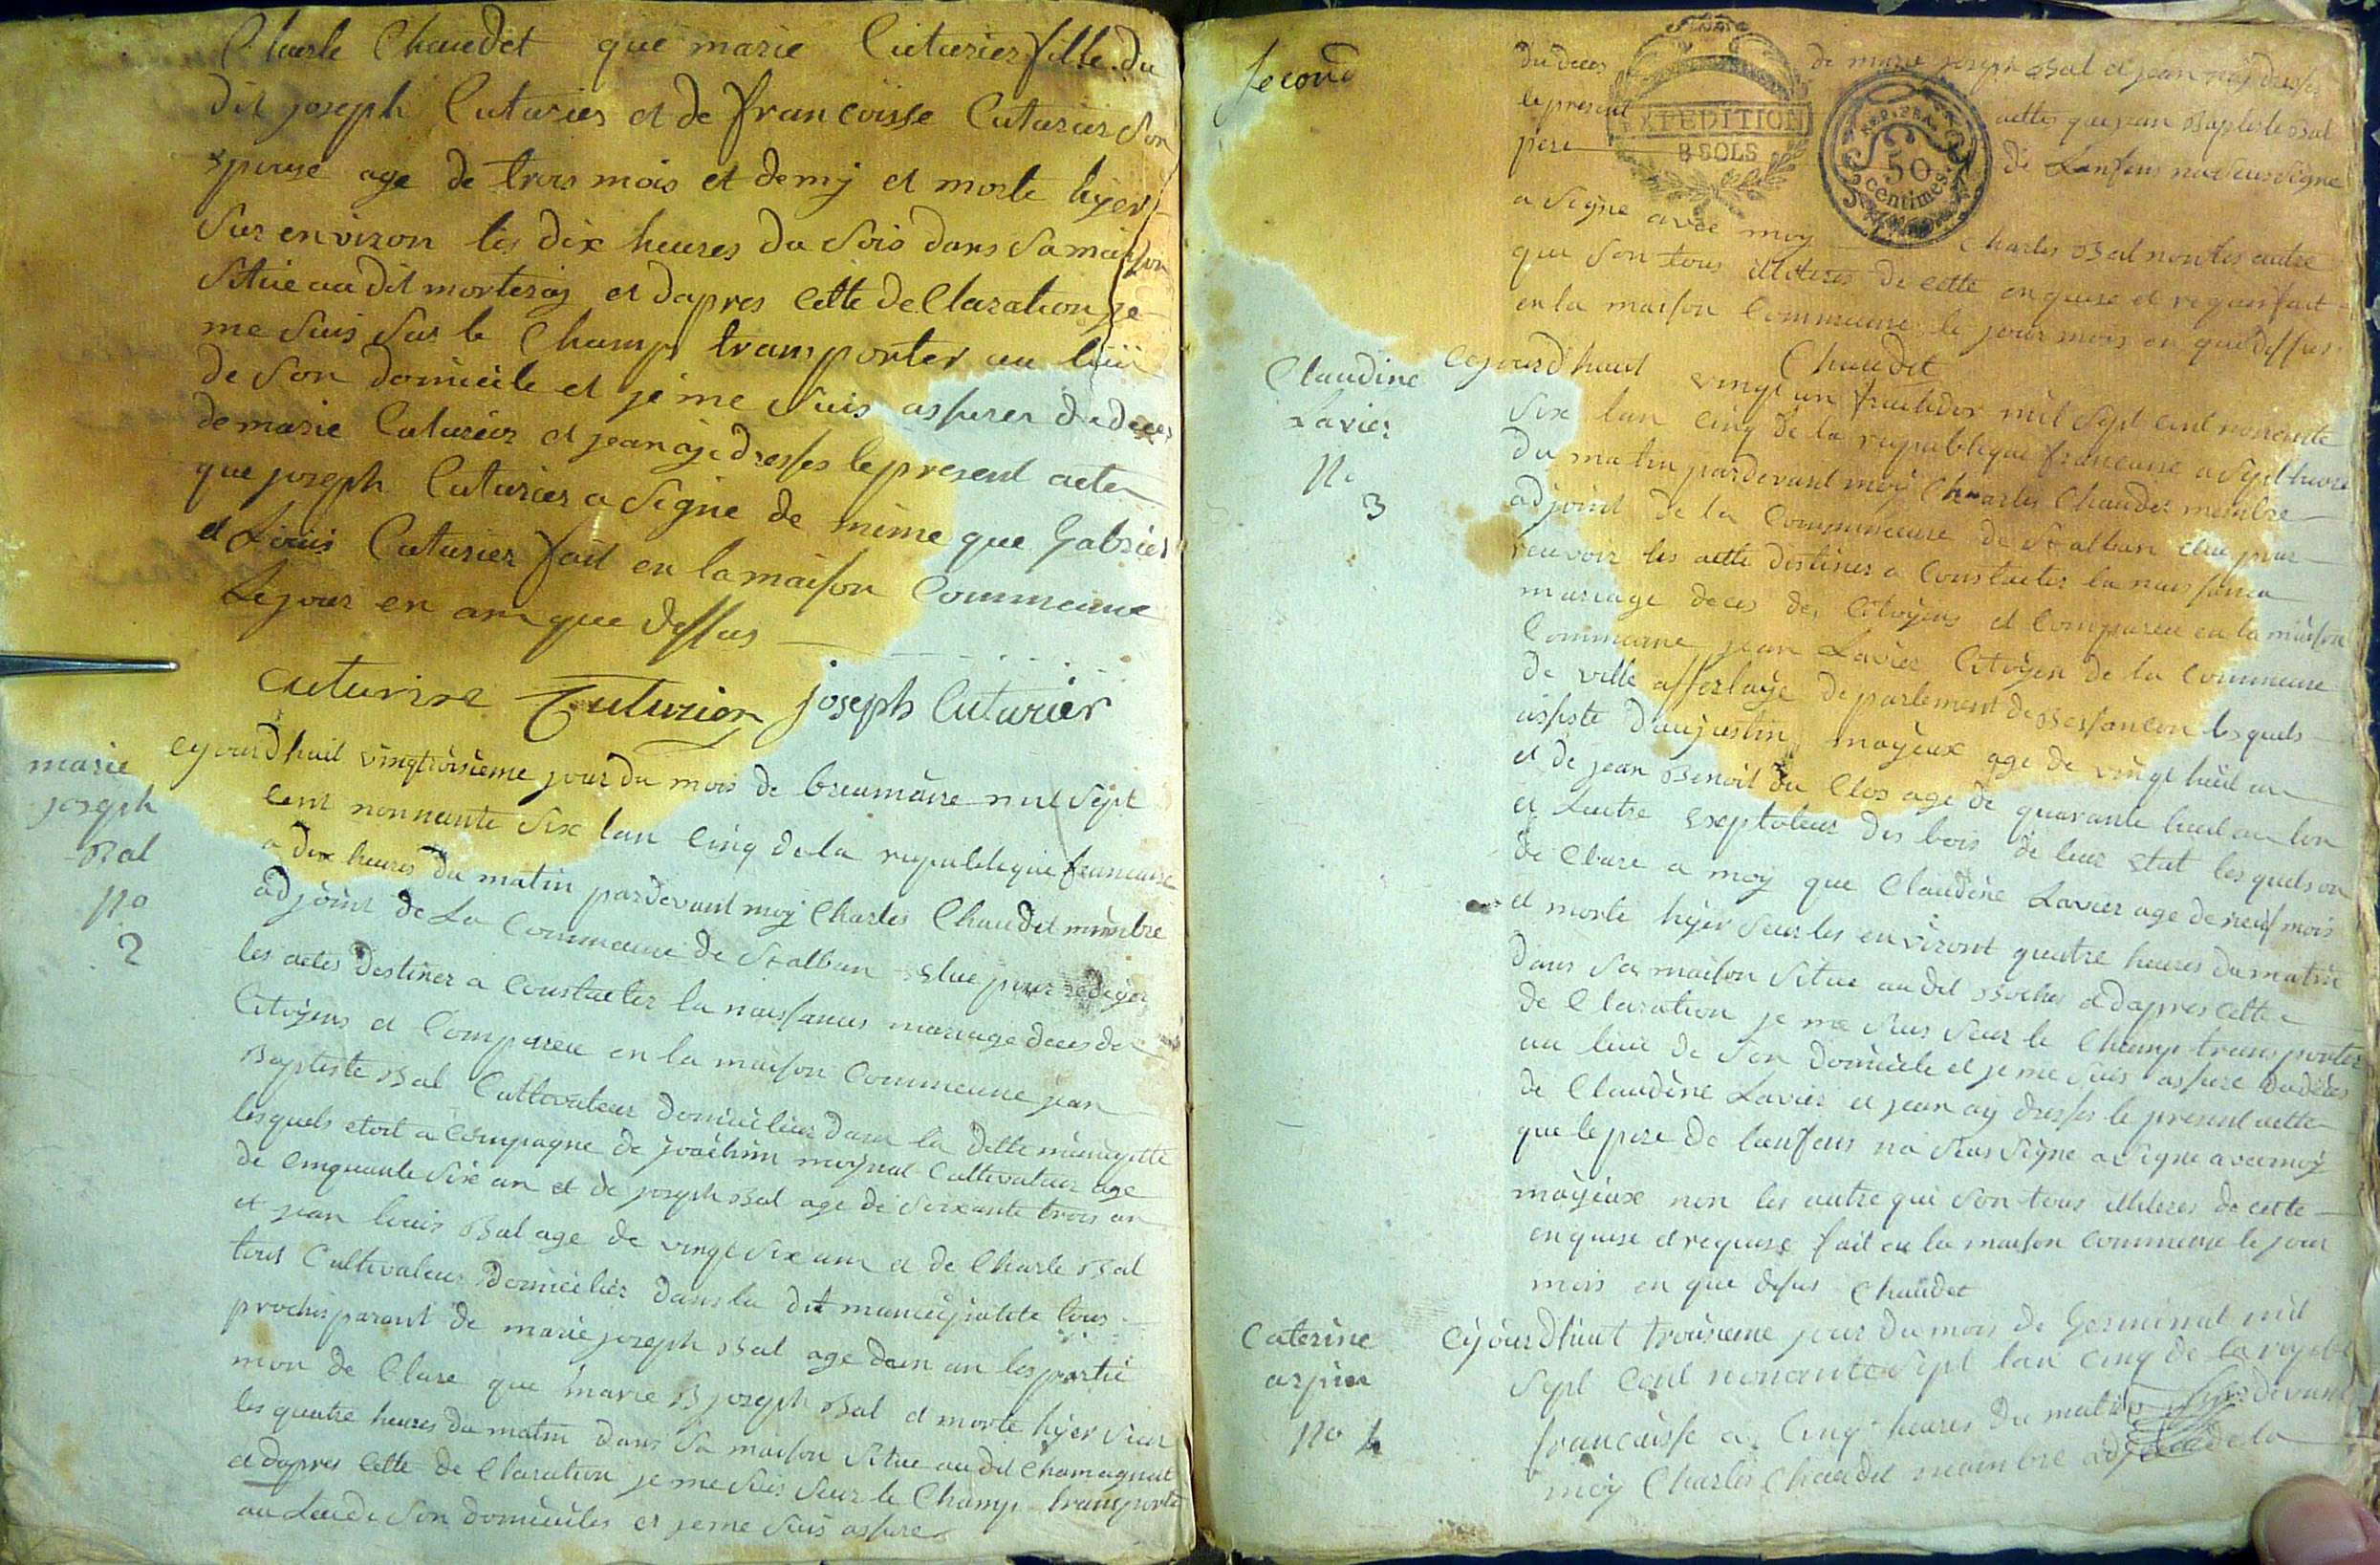 Charle Chaudet que marie Cuturier fille du
dit joseph Cuturier et de francoisse Cuturier son
epouse age de trois mois et demÿ et morte hÿer
sur environ les dix heures du soir dans sa maison
situé au dit morteraÿ et dapres cette declaration je
me suis sur le Champ transporter au lieu
de son domicile et je me suis assurer du deces
de marie Cuturier et jean aÿ dresses le present acte
que joseph Cuturier a signe de mème que Gabriel
et Louis Cuturier fait en la maison Commeune
Le jour en an que dessus
Cuturire Cuturier joseph Cuturier
marie
joseph
Bal
No
2
cejourdhuit vingtroisieme jour du mois de breumaire mil sept
cent nonnante six lan cinq de la republique francaise
a dix heures du matin pardevant moÿ Charles Chaudet membre
adjoint de La Commeune de St alban elue pour rediger
les actes destiner a Constaeter la naissances mariage deces des
Citoÿens et Compareu en la maison Commeune jean
Baptiste Bal Cultivateur domicilier dans la dette
lesquels etoit a compagne de joachim moÿnal Cultivateur age
de cinquante six an et de joseph Bal age de soixante trois an
et jean louis Bal age de vingt six ans et de Charle Bal
tous Cultivateur domicilier dans la dit tous
proches parant de marie joseph Bal age dun an les partie
mon de Clare que marie B joseph Bal et morte hÿer sur
les quatre heures du matin dans sa maison situe au dit Chamagnat
et dapres cette de Claration je me suis seur le Champ transporté
au Lieu de son domiciles et je me suis assurer
second
du deces de marie joseph Bal et jean aÿ dresser
le present acttes que jean Baptiste Bal
pere de Lanfans na seu signe
a signe avec moÿ Charles Bal non les autre
que son tous illiteres de cette enquise et requis fait
en la maison Commeune le jour mois en que dessus
Chaudet
Claudine
Lavier
No
3
Cejourdhuit vingt un fructidor mil sept cent nonente
six lan cinq de la republique francaise a sept heure
du matin pardevant moÿ Charles Chaudet membre
adjoint de la Commeune de St alban elue pour
recevoir les actte destiner a Constaeter la naissance
mariage deces des Citoÿens et Compareu en la maison
Commeune jean Lavier Citoÿen de la Commeune
de ville departement de Bessancon lesquels
assiste daugustin moÿeux age de vingt huit an
et de jean Benoit du Clos age de quarante huit an lon
et lautre exeptoteur des bois de leur etat lesquels on
de Clare a moÿ que Claudine Lavier age de neuf mois
et morte hÿer seur les environt quatre heures du matin
dans sa maison situe au dit Rocher et dapres cette
de Claration je me suis seur le Champ transporter
au lieu de son domicile et je me suis assure du deces
de Claudine Lavier et jean aÿ dresser le present actte
que le pere de lanfans na seus signe a signe avec moÿ
moÿeux non les autre qui son tous illiteres de cette
enquise et requise fait en la maison Commeune le jour
mois en que desus Chaudet
Caterine
arpin
No 4
Cejourdhuit troisieme jour du mois de Germinal mil
sept cent nonente sept lan cinq de la republ
francaisse a Cinq heures du matin par devant
moÿ Charles Chaudet membre adjoint de la
EXPEDITION
8 SOLS
50
centimes